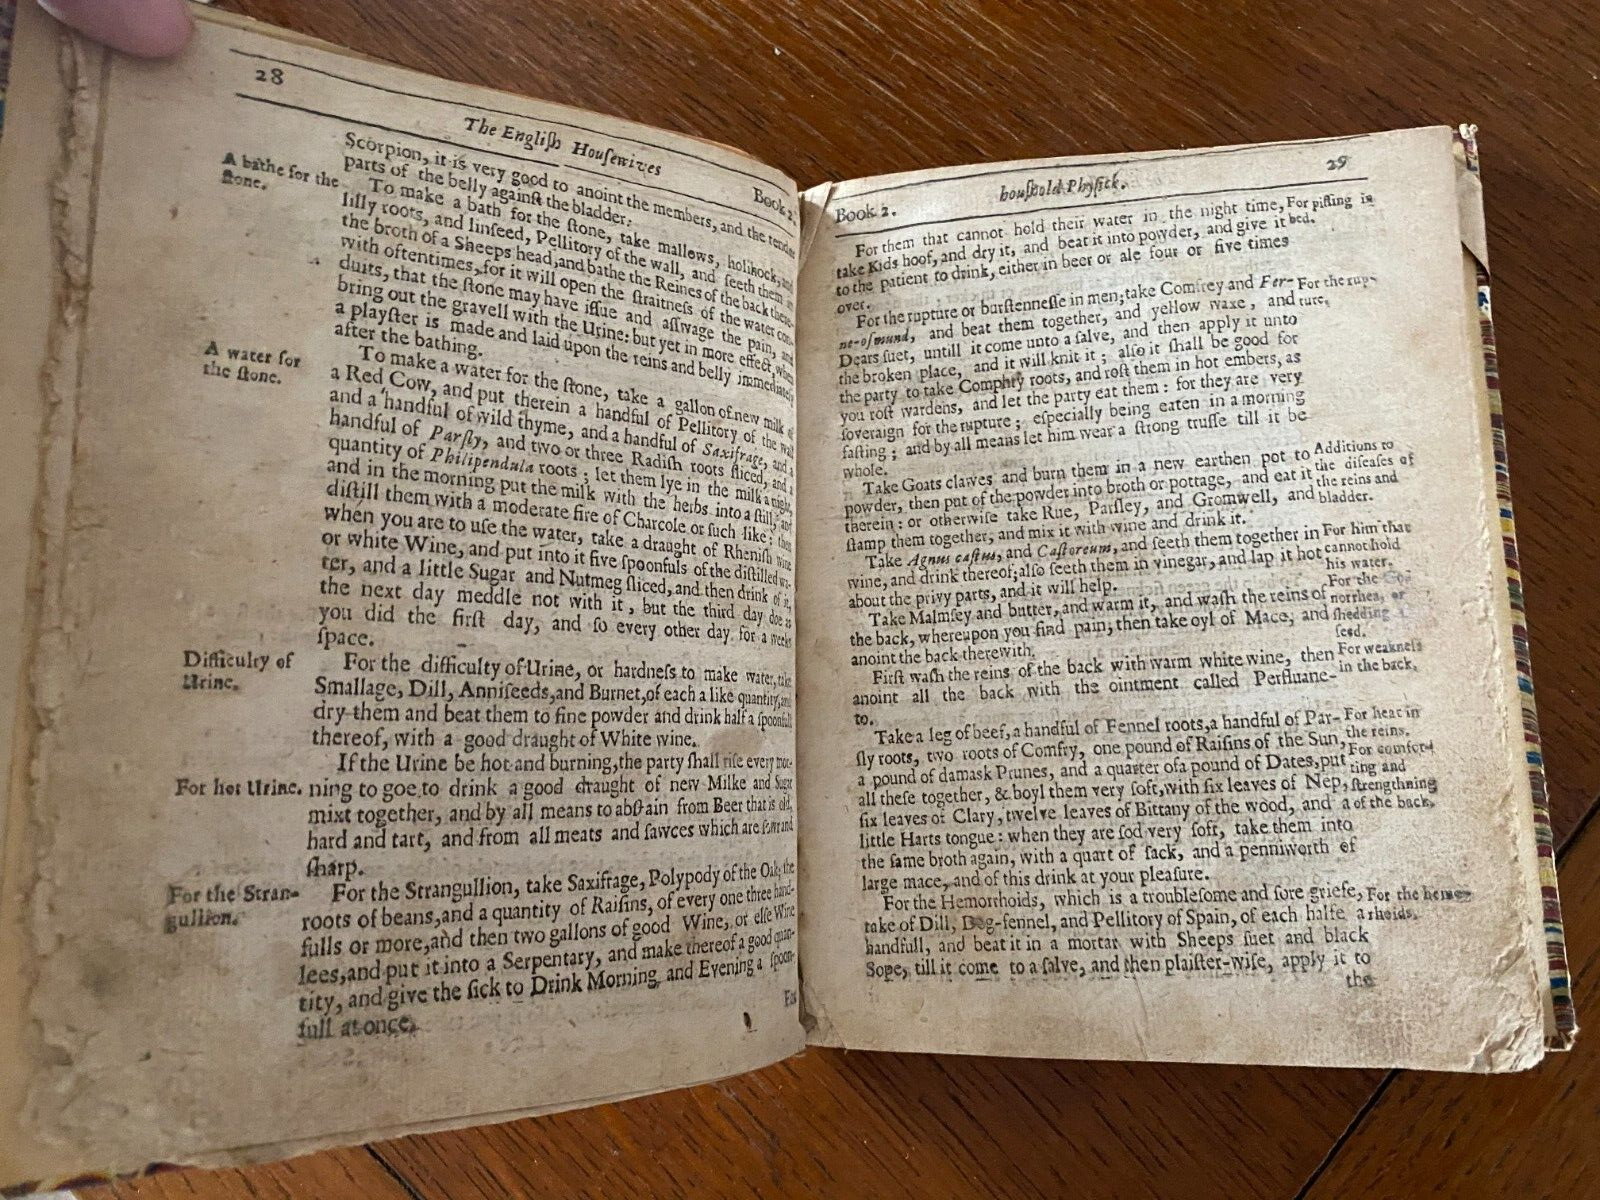 28
The Engliſh Houſewives
Book 2.
Scorpion, it is very good to anoint the members, and the tender
parts of the belly againſt the bladder.
A bathe for the
ſtone.
To make a bath for the ſtone, take mallows, holihock, and
lilly roots, and linſeed, Pellitory of the wall, and ſeeth them in
the broth of a Sheeps head, and bathe the Reines of the back there-
with oftentimes, for it will open the ſtraitneſs of the water con-
duits, that the ſtone may have iſſue and aſſwage the pain, and
bring out the gravell with the Urine: but yet in more effect, when
a playſter is made and laid upon the reins and belly immediately
after the bathing.
A water for
the ſtone.
To make a water for the ſtone, take a gallon of new milk of
a Red Cow, and put therein a handful of Pellitory of the wall
and a handful of wild thyme, and a handful of Saxifrage, and a
handful of Parſly, and two or three Radiſh roots ſliced, and a
quantity of Philipendula roots; let them lye in the milk a night,
and in the morning put the milk with the herbs into a ſtill, and
diſtill them with a moderate fire of Charcole or ſuch like: then
when you are to uſe the water, take a draught of Rheniſh wine
or white Wine, and put into it five ſpoonfuls of the diſtilled wa-
ter, and a little Sugar and Nutmeg ſliced, and then drink of it,
the next day meddle not with it, but the third day doe as
you did the firſt day, and ſo every other day for a weeks
ſpace.
Difficulty of
Urine.
For the difficulty of Urine, or hardneſs to make water, take
Smallage, Dill, Anniſeeds, and Burnet, of each a like quantity, and
dry them and beat them to fine powder and drink half a ſpoonfull
thereof, with a good draught of White wine.
For hot Urine.
If the Urine be hot and burning, the party ſhall riſe every mor-
ning to goe to drink a good draught of new Milke and Sugar
mixt together, and by all means to abſtain from Beer that is old,
hard and tart, and from all meats and ſawces which are ſowr and
ſharp.
For the Stran-
gullion.
For the Strangullion, take Saxifrage, Polypody of the Oak, the
roots of beans, and a quantity of Raiſins, of every one three hand-
fulls or more, and then two gallons of good Wine, or elſe Wine
lees, and put it into a Serpentary, and make thereof a good quan-
tity, and give the ſick to Drink Morning, and Evening a ſpoon-
full at once.
For
Book 2.
houſhold Phyſick.
29
For them that cannot hold their water in the night time,
take Kids hoof, and dry it, and beat it into powder, and give it
to the patient to drink, either in beer or ale four or five times
over.
For piſſing in
bed.
For the rupture or burſtenneſſe in men; take Comfrey and Fer-
ne-oſmund, and beat them together, and yellow waxe, and
Dears ſuet, untill it come unto a ſalve, and then apply it unto
the broken place, and it will knit it; alſo it ſhall be good for
the party to take Comphry roots, and roſt them in hot embers, as
you roſt wardens, and let the party eat them: for they are very
ſoveraign for the rupture; eſpecially being eaten in a morning
faſting; and by all means let him wear a ſtrong truſſe till it be
whole.
For the rup-
ture.
Take Goats clawes and burn them in a new earthen pot to
powder, then put of the powder into broth or pottage, and eat it
therein: or otherwiſe take Rue, Parſley, and Gromwell, and
ſtamp them together, and mix it with wine and drink it.
Additions to
the diſeaſes of
the reins and
bladder.
Take Agnus caſtus, and Caſtoreum, and ſeeth them together in
wine, and drink thereof; alſo ſeeth them in vinegar, and lap it hot
about the privy parts, and it will help.
For him that
cannot hold
his water.
Take Malmſey and butter, and warm it, and waſh the reins of
the back, whereupon you find pain; then take oyl of Mace, and
anoint the back therewith.
For the Go-
norrhea, or
ſhedding
ſeed.
Firſt waſh the reins of the back with warm white wine, then
anoint all the back with the ointment called Perſtuane-
to.
For weakneſs
in the back.
Take a leg of beef, a handful of Fennel roots, a handful of Par-
ſly roots, two roots of Comfry, one pound of Raiſins of the Sun,
a pound of damask Prunes, and a quarter of a pound of Dates, put
all theſe together, & boyl them very ſoft, with ſix leaves of Nep,
ſix leaves of Clary, twelve leaves of Bittany of the wood, and a
little Harts tongue: when they are ſod very ſoft, take them into
the ſame broth again, with a quart of ſack, and a penniworth of
large mace, and of this drink at your pleaſure.
For heat in
the reins.
For comfor-
ting and
ſtrengthning
of the back.
For the Hemorrhoids, which is a troubleſome and ſore grieſe,
take of Dill, Dog-fennel, and Pellitory of Spain, of each halfe a
handfull, and beat it in a mortar with Sheeps ſuet and black
Sope, till it come to a ſalve, and then plaiſter-wiſe, apply it to
the
For the hemor-
rhoids.